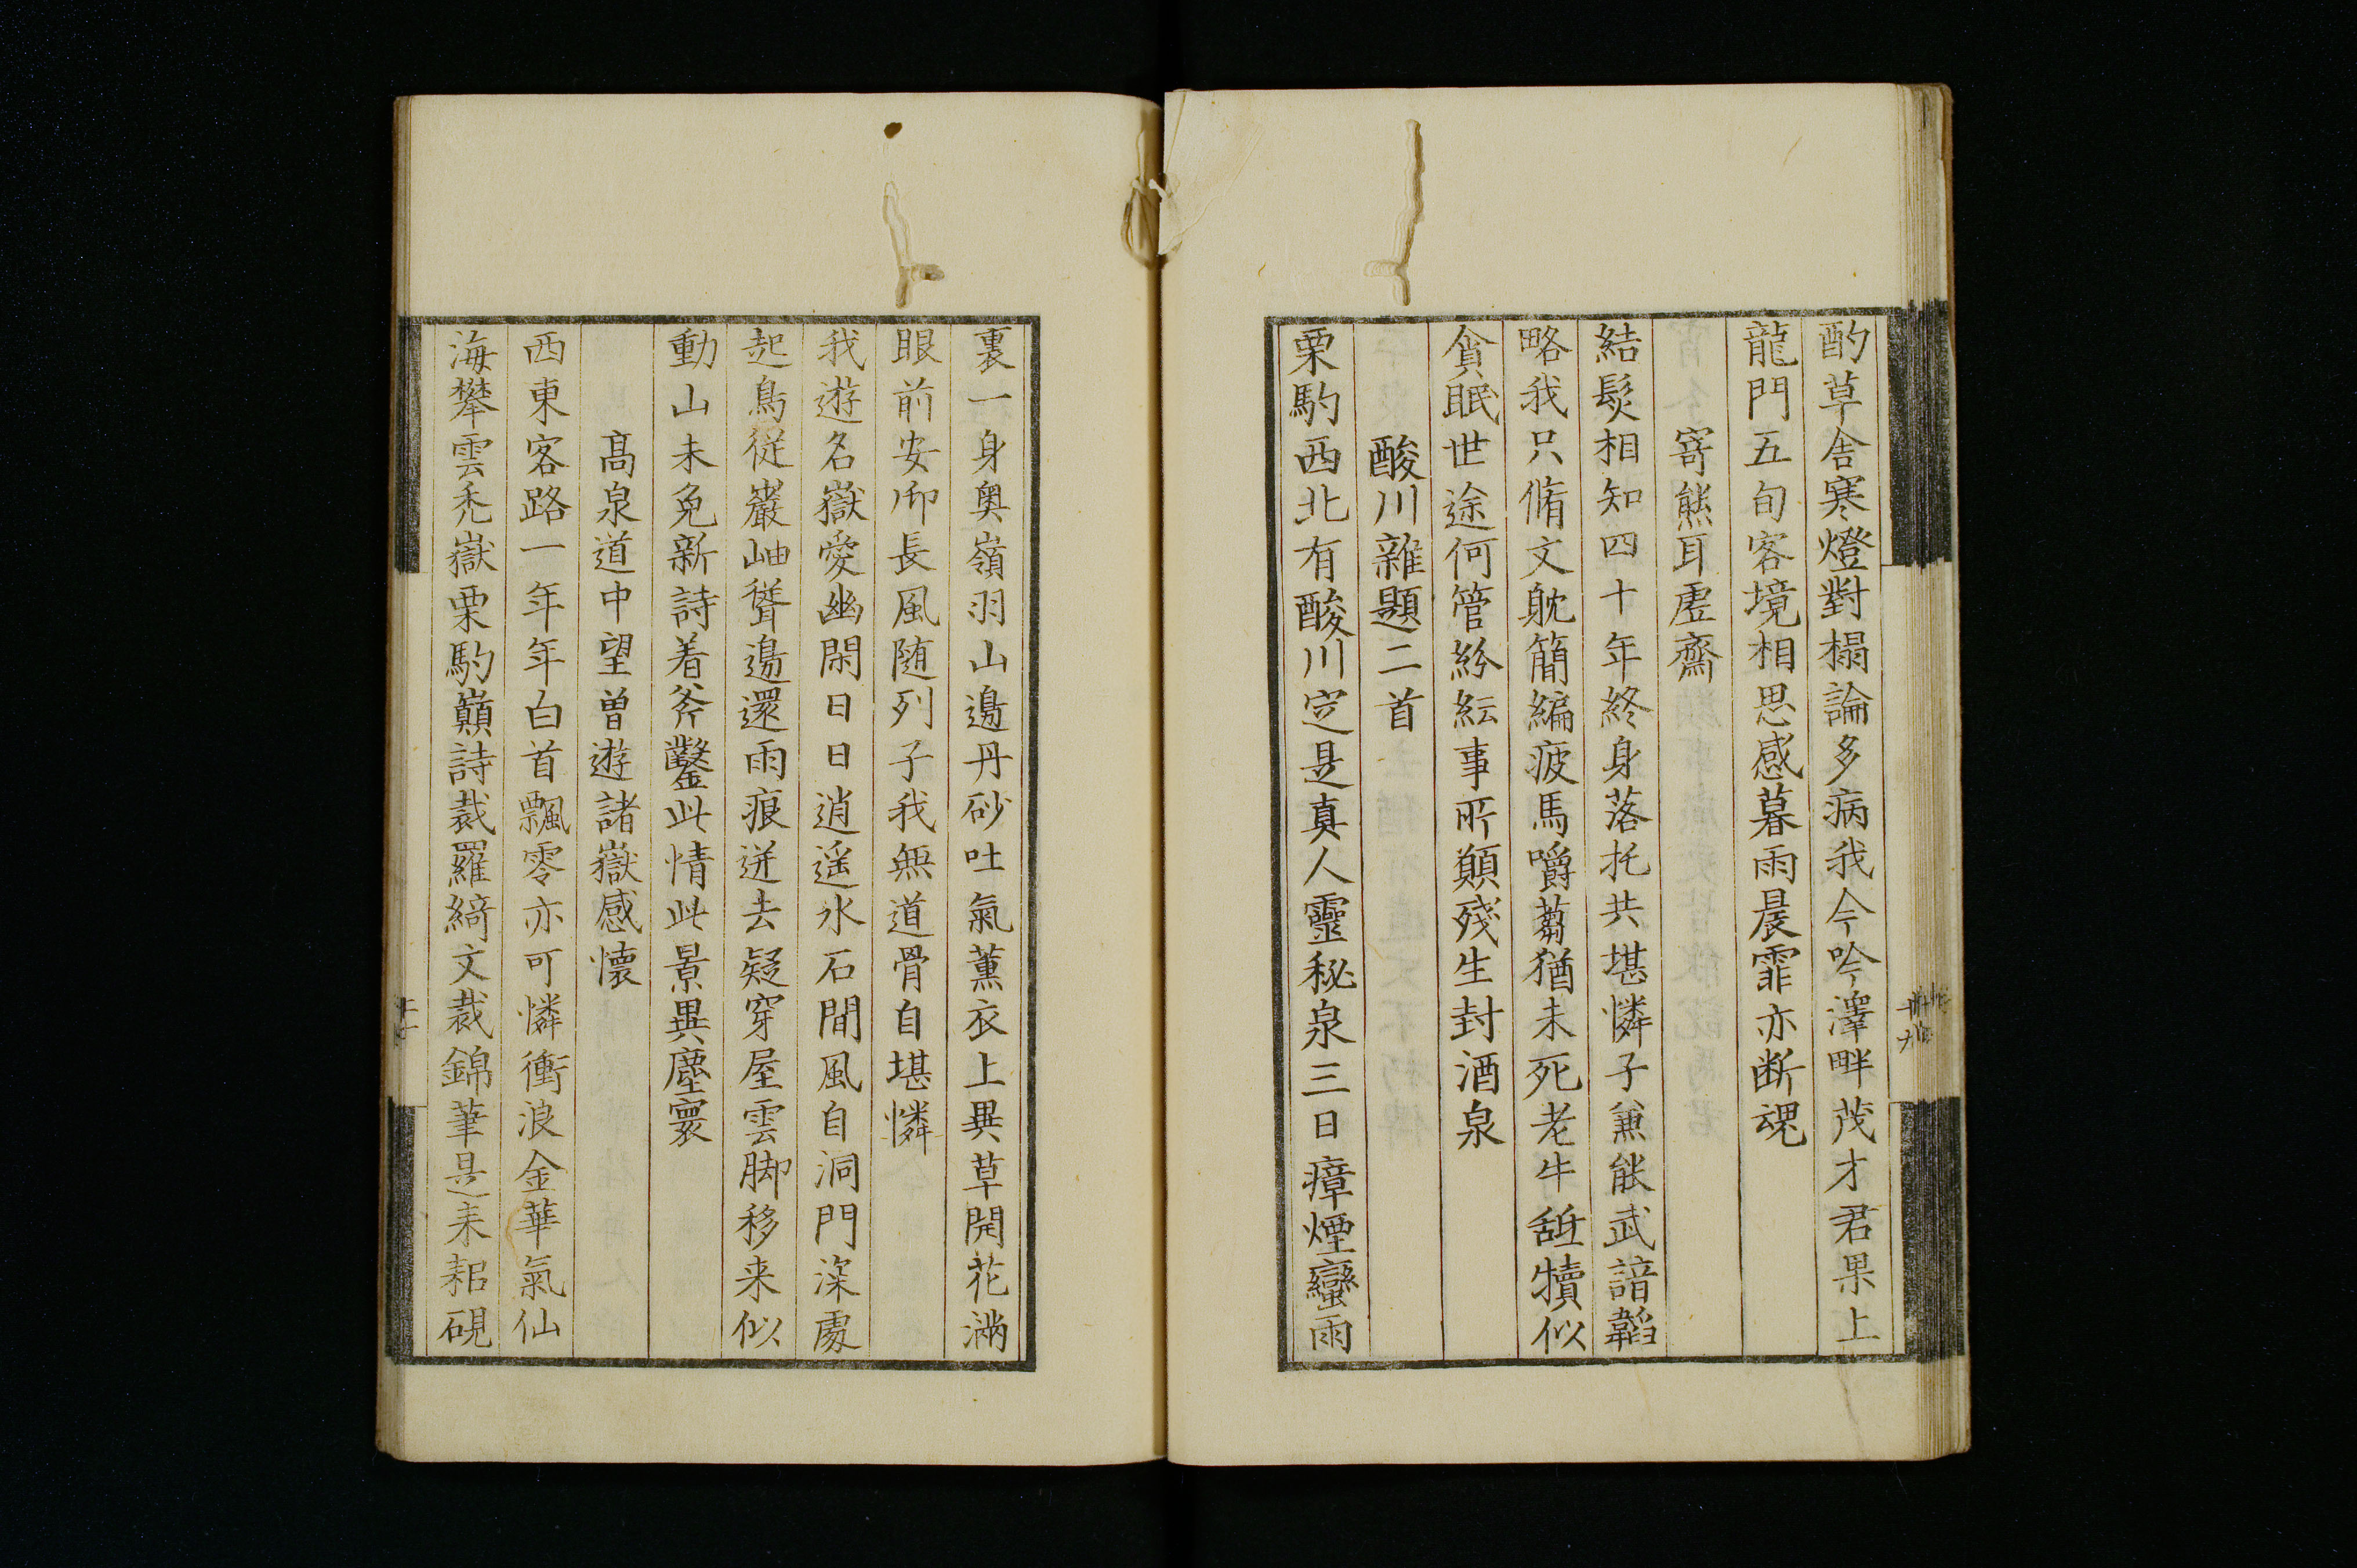 酌草舎寒燈對榻論多病我今吟澤畔茂才君果上
龍門五旬客境相思感暮雨晨霏亦断魂
寄熊耳虚齋
結髮相知四十年終身落托共堪憐子兼能武諳韜
略我只脩文躭簡編疲馬嚼蒭猶未死老牛舐犢似
貪眠世途何管紛紜事所願殘生封酒泉
酸川雜題二首
栗駒西北有酸川定是真人靈秘泉三日瘴煙蠻雨
裏一身奥嶺羽山邊丹砂吐氣薫衣上異草開花満
眼前安卬長風随列子我無道骨自堪憐
我遊名嶽愛幽閑日日逍遥水石間風自洞門深處
起鳥従巖岫聳邊還雨痕迸去疑穿屋雲脚移来似
動山未免新詩着斧鑿此情此景異塵寰
髙泉道中望曽遊諸嶽感懐
西東客路一年年白首飄零亦可憐衝浪金華氣仙
海攀雲禿嶽栗駒巓詩裁羅綺文裁錦筆是耒耜硯